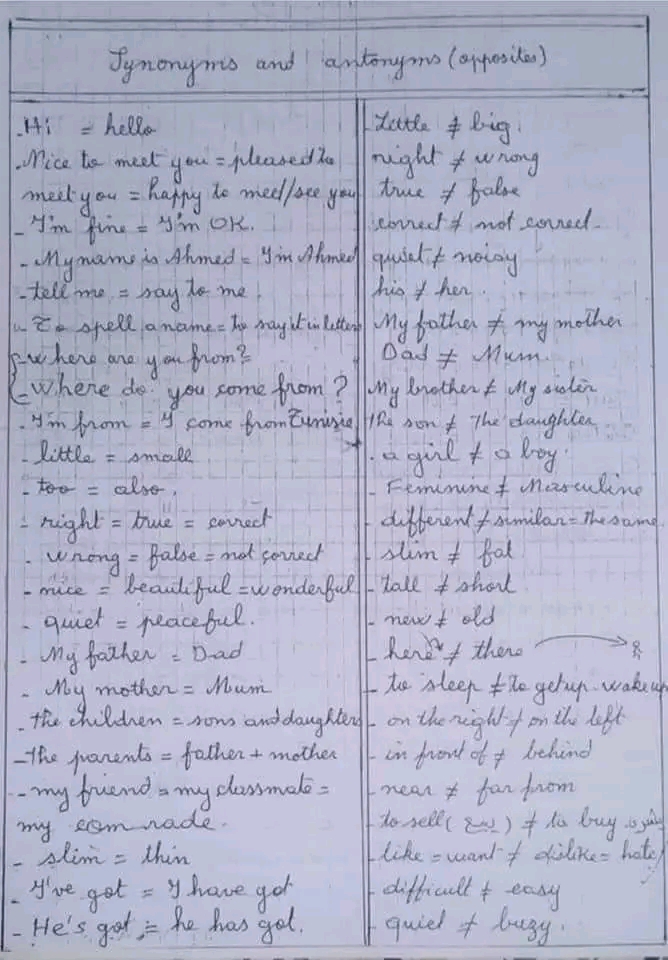 Synonyms and antonyms (opposites)
- Hi = hello
- Nice to meet you = pleased to
meet you = happy to meet/see you
- I'm fine = I'm OK.
- My name is Ahmed = I'm Ahmed
- tell me = say to me.
- To spell a name = to say it in letters
- where are you from?
- where do you come from?
- I'm from = I come from Tunisie
- little = small
- too = also.
- right = true = correct
- wrong = false = not correct
- nice = beautiful = wonderful
- quiet = peaceful.
- My father = Dad
- My mother = Mum
- the children = sons and daughters
- the parents = father + mother
- my friend = my classmate =
my comrade.
- slim = thin
- I've got = I have got
- He's got = he has got.
little ≠ big
right ≠ wrong
true ≠ false
correct ≠ not correct.
quiet ≠ noisy
his ≠ her.
My father ≠ my mother
Dad ≠ Mum
My brother ≠ My sister
The son ≠ The daughter
. a girl ≠ a boy.
- Feminine ≠ Masculine
- different ≠ similar = the same
- slim ≠ fat
- tall ≠ short
- new ≠ old
- here ≠ there
- to sleep ≠ to get up - wake up
- on the right ≠ on the left
- in front of ≠ behind
- near ≠ far from
- to sell ( بيع ) ≠ to buy
- like = want ≠ dislike = hate
- difficult ≠ easy
- quiet ≠ buzy.